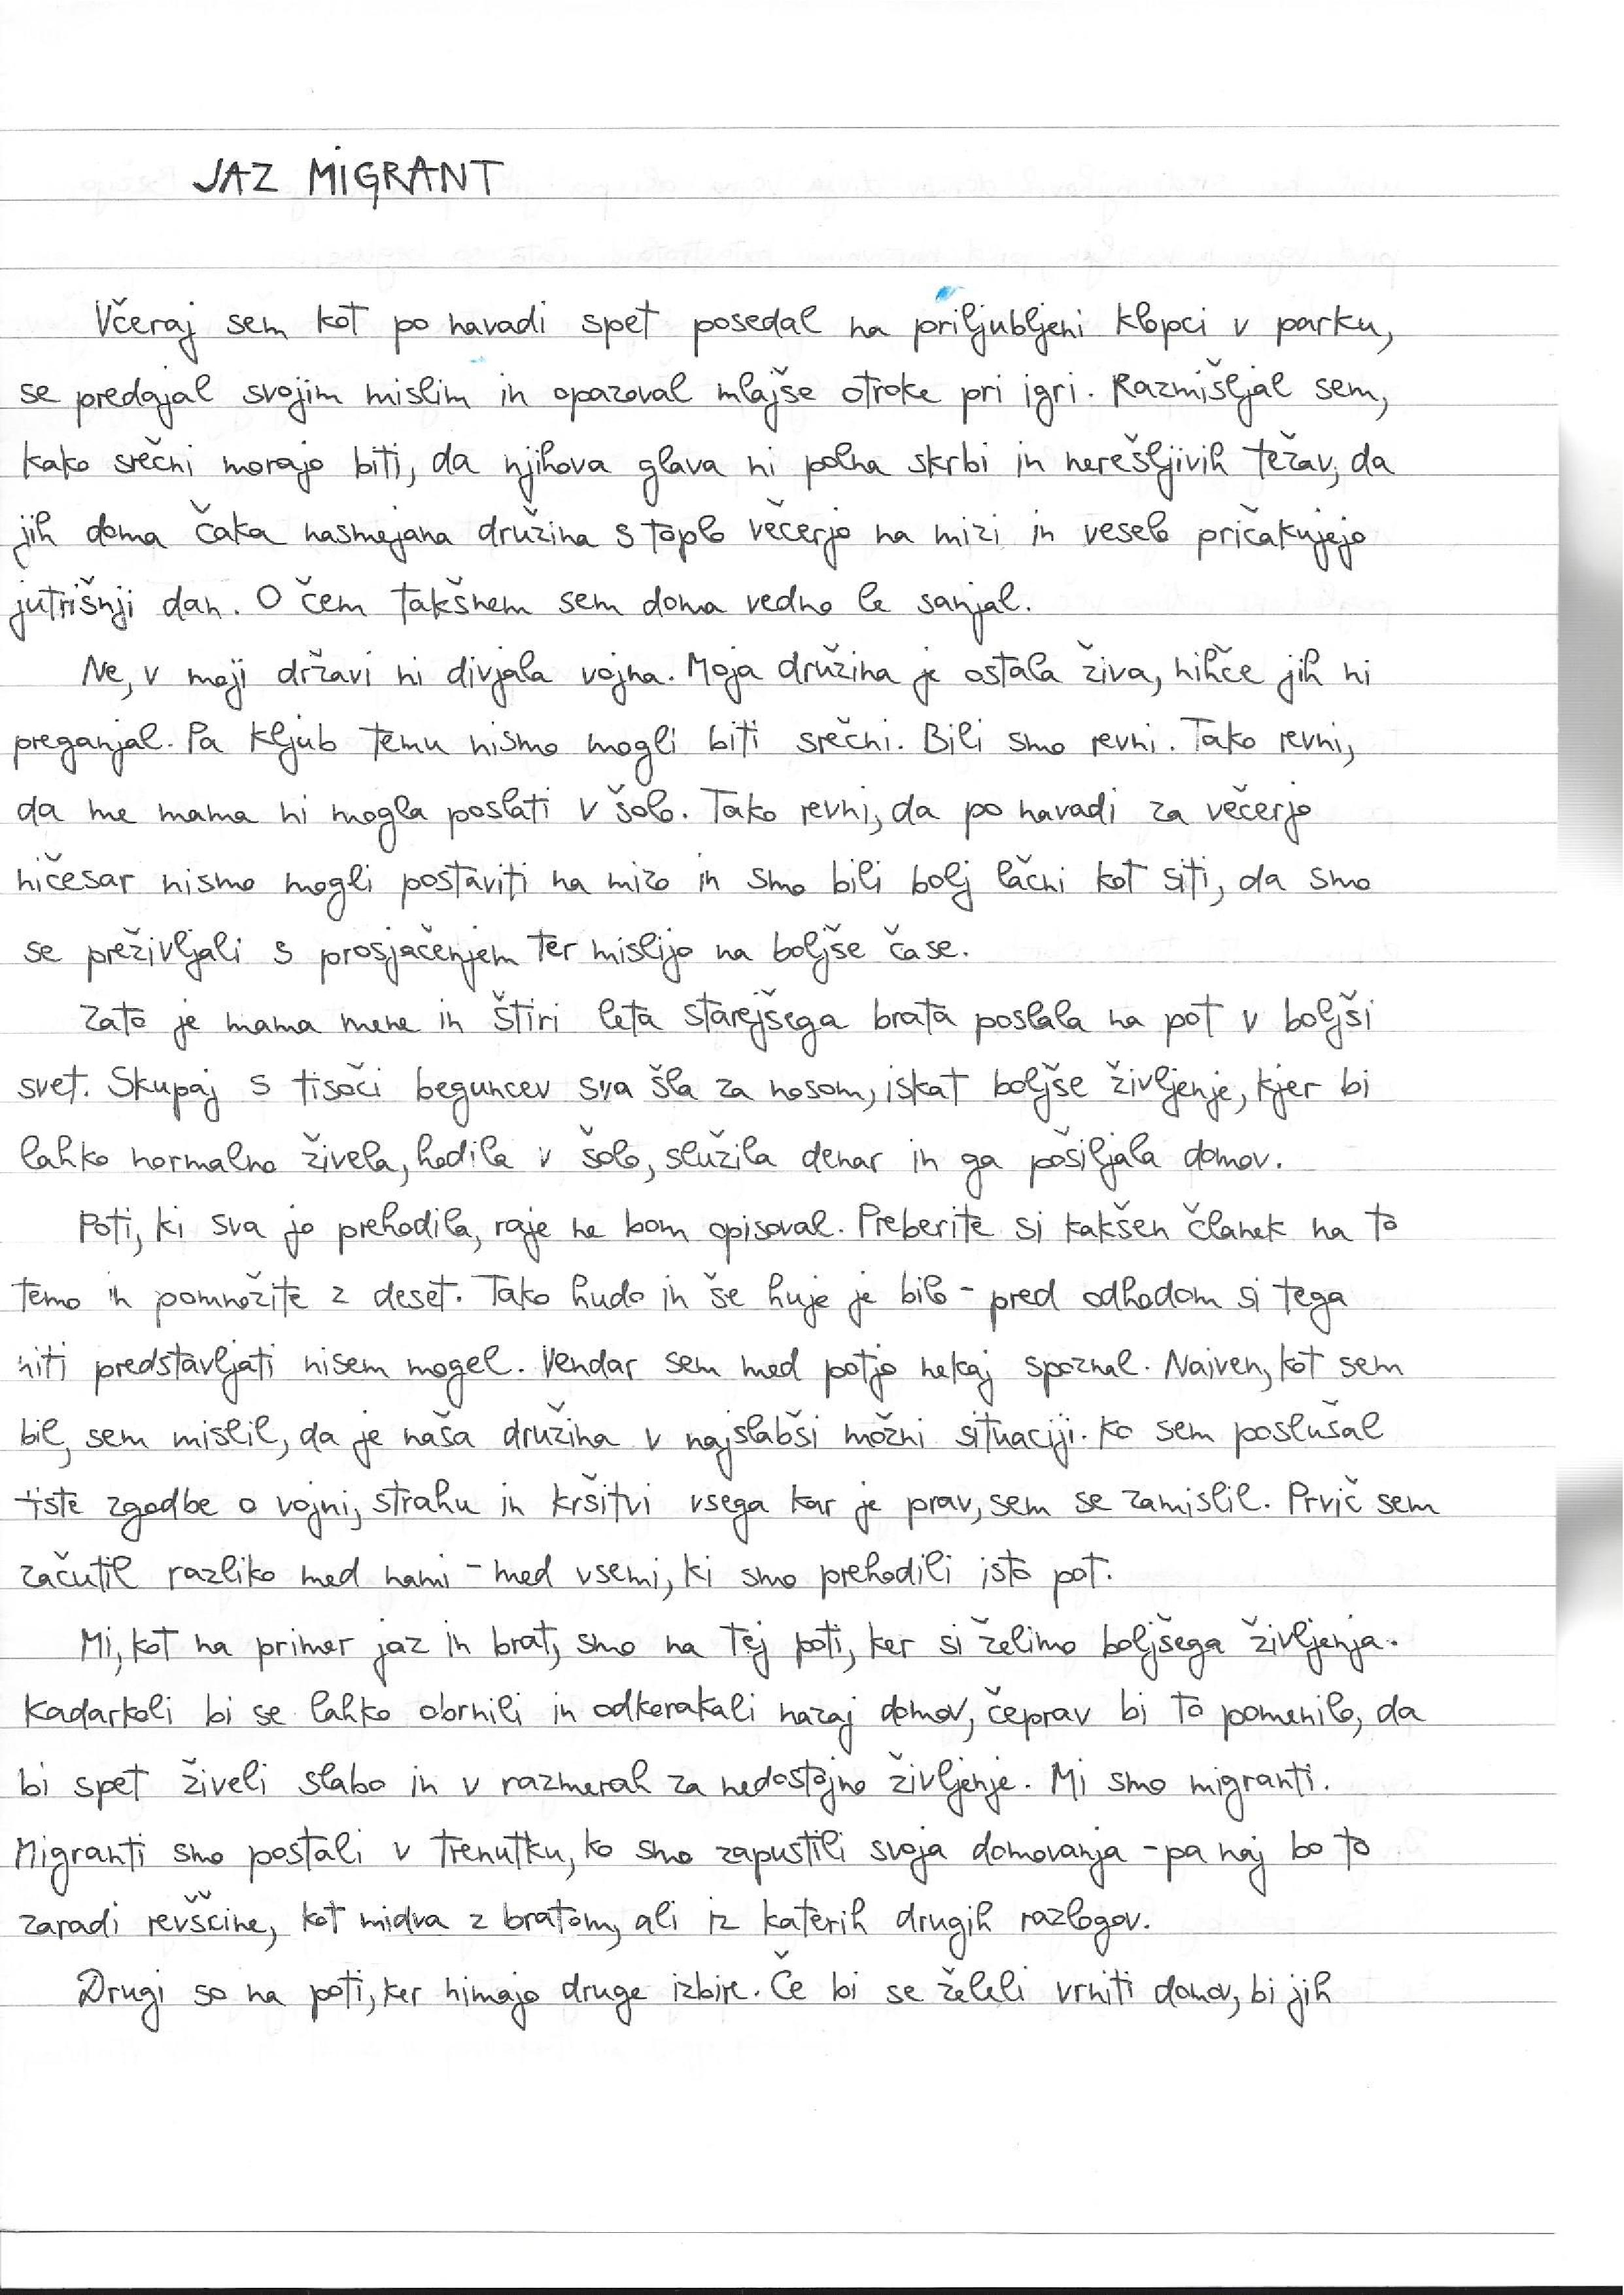 JAZ MIGRANT
Včeraj sem kot po navadi spet posedal na priljubljeni klopci v parku,
se predajal svojim mislim in opazoval mlajše otroke pri igri. Razmišljal sem,
kako srečni morajo biti, da njihova glava ni polna skrbi in nerešljivih težav, da
jih doma čaka nasmejana družina s toplo večerjo na mizi in veselo pričakujejo
jutrišnji dan. O čem takšnem sem doma vedno le sanjal.
Ne, v moji državi ni divjala vojna. Moja družina je ostala živa, nihče jih ni
preganjal. Pa kljub temu nismo mogli biti srečni. Bili smo revni. Tako revni,
da me mama ni mogla poslati v šolo. Tako revni, da po navadi za večerjo
ničesar nismo mogli postaviti na mizo in smo bili bolj lačni kot siti, da smo
se preživljali s prosjačenjem ter mislijo na boljše čase.
Zato je mama mene in štiri leta starejšega brata poslala na pot v boljši
svet. Skupaj s tisoči beguncev sva šla za nosom, iskat boljše življenje, kjer bi
lahko normalno živela, hodila v šolo, služila denar in ga pošiljala domov.
Poti, ki sva jo prehodila, raje ne bom opisoval. Preberite si kakšen članek na to
temo in pomnožite z deset. Tako hudo in še huje je bilo - pred odhodom si tega
niti predstavljati nisem mogel. Vendar sem med potjo nekaj spoznal. Naiven, kot sem
bil, sem mislil, da je naša družina v najslabši možni situaciji. Ko sem poslušal
tiste zgodbe o vojni, strahu in kršitvi vsega kar je prav, sem se zamislil. Prvič sem
začutil razliko med nami - med vsemi, ki smo prehodili isto pot.
Mi, kot na primer jaz in brat, smo na tej poti, ker si želimo boljšega življenja.
Kadarkoli bi se lahko obrnili in odkorakali nazaj domov, čeprav bi to pomenilo, da
bi spet živeli slabo in v razmerah za nedostojno življenje. Mi smo migranti.
Migranti smo postali v trenutku, ko smo zapustili svoja domovanja - pa naj bo to
zaradi revščine, kot midva z bratom, ali iz katerih drugih razlogov.
Drugi so na poti, ker nimajo druge izbire. Če bi se želeli vrniti domov, bi jih